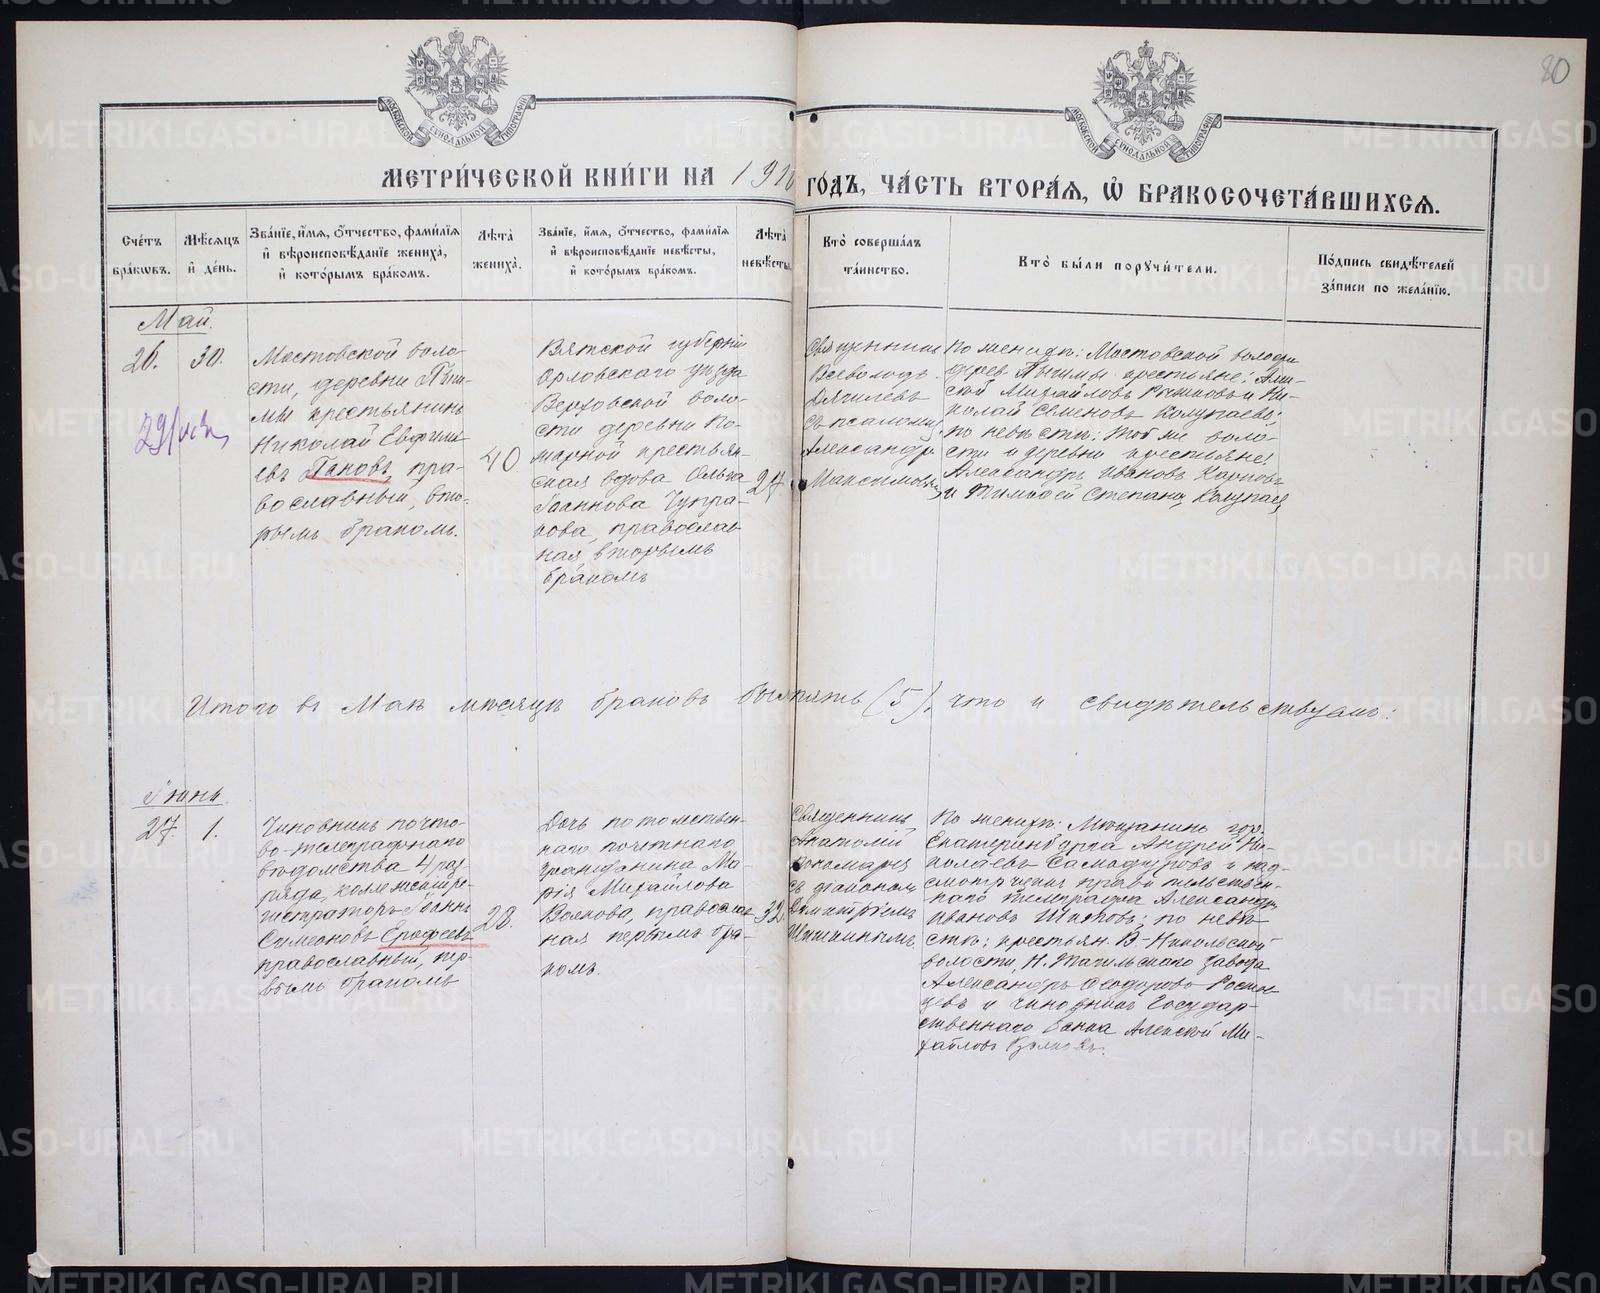 80
МОСКОВСКОЙ СѴНОДАЛЬНОЙ ТИПОГРАФІИ
МОСКОВСКОЙ СѴНОДАЛЬНОЙ ТИПОГРАФІИ
МЕТРИ́ЧЕСКОЙ КНИ́ГИ НА 1910 ГО́ДЪ, ЧА́СТЬ ВТОРА́Я, Ѽ БРАКОСОЧЕТА́ВШИХСЯ.
Сче́тъ бра́кѡвъ.
Мѣ́сяцъ и҆ де́нь.
Зва́нїе, и҆́мя, ѻ҆́тчество, фами́лїя и҆ вѣроисповѣ́данїе жениха̀, и҆ кото́рымъ бра́комъ.
Лѣ́та жениха̀.
Зва́нїе, и҆́мя, ѻ҆́тчество, фами́лїя и҆ вѣроисповѣ́данїе невѣ́сты, и҆ кото́рымъ бра́комъ.
Лѣ́та невѣ́сты.
Кто̀ соверша́лъ та́инство.
Кто̀ бы́ли порꙋчи́тели.
По́дпись свидѣ́телей за́писи по жела́нїю.
Май.
26.
30.
Мостовской воло-
сти, деревни Пыш-
мы крестьянинъ
Николай Евфимі-
евъ Пановъ, пра-
вославный, вто-
рымъ бракомъ.
40
Вятской губерніи
Орловскаго уѣзда
Верховской воло-
сти деревни По-
жарной крестьян-
ская вдова Ольга
Іоаннова Чупра-
кова, православ-
ная, вторымъ
бракомъ
27.
Священникъ
Всеволодъ
съ псаломщ.
Александр.
Максимовы
По женихѣ: Мостовской волости
дерев. Пышмы крестьяне: Алек-
сѣй Михайловъ и Ни-
колай Семеновъ Колупаевъ;
по невѣстѣ: той же воло-
сти и деревни крестьяне:
Александръ Ивановъ Карповъ
и Тимофей Степанъ Колупаевъ
Итого въ Маѣ мѣсяцѣ браковъ было пять (5), что и свидѣтельствуемъ:
Іюнь.
27.
1.
Чиновникъ почто-
во-телеграфнаго
вѣдомства 4 раз-
ряда, коллежскій ре-
гистраторъ Іоаннъ
Симеоновъ Ерофеевъ
православный, пер-
вымъ бракомъ
28.
Дочь потомствен-
наго почетнаго
гражданина Ма-
рія Михайлова
Волкова, православ-
ная первымъ бра-
комъ.
32.
Священникъ
Анатолій
Пономаревъ
съ діакономъ
Димитріемъ
Шишкинымъ.
По женихѣ: Мѣщанинъ гор.
Екатеринбурга Андрей Ни-
колаевъ и над-
смотрщикъ правительствен-
наго телеграфа Александръ
Ивановъ по невѣ-
стѣ: крестьян. В.-Никольской
волости, Н. Тагильскаго завода
Александръ Ѳеодоровъ
и чиновникъ Государ-
ственнаго банка Алексѣй Ми-
хайловъ Волковъ.